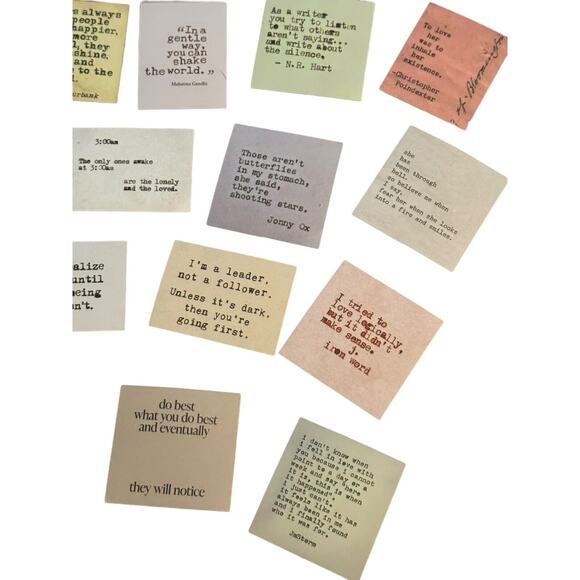 s always
people
happier,
more
l, they
shine,
and
e to the
d.
urbank
"In a
gentle
way,
you can
shake
the world."
Mahatma Gandhi
As a writer
you try to listen
to what others
aren't saying...
and write about
the silence.
- N.R. Hart
To love
her
was to
inhale
her
existence.
-Christopher
Poindexter
3:00am
The only ones awake
at 3:00am
are the lonely
and the loved.
Those aren't
butterflies
in my stomach,
she said,
they're
shooting stars.
Jonny Ox
she
has
been through
hell,
so believe me when
I say,
fear her when she looks
into a fire and smiles.
alize
until
eing
n't.
I'm a leader,
not a follower.
Unless it's dark,
then you're
going first.
I tried to
love logically,
but it didn't
make sense.
j.
iron word
do best
what you do best
and eventually
they will notice
i don't know when
i fell in love with
you because i cannot
point to a day or a
week and say, "here
it is, this is when
it happened".
i just can't.
it feels like it has
always been in me
and i finally found
who it was for.
JmStorm